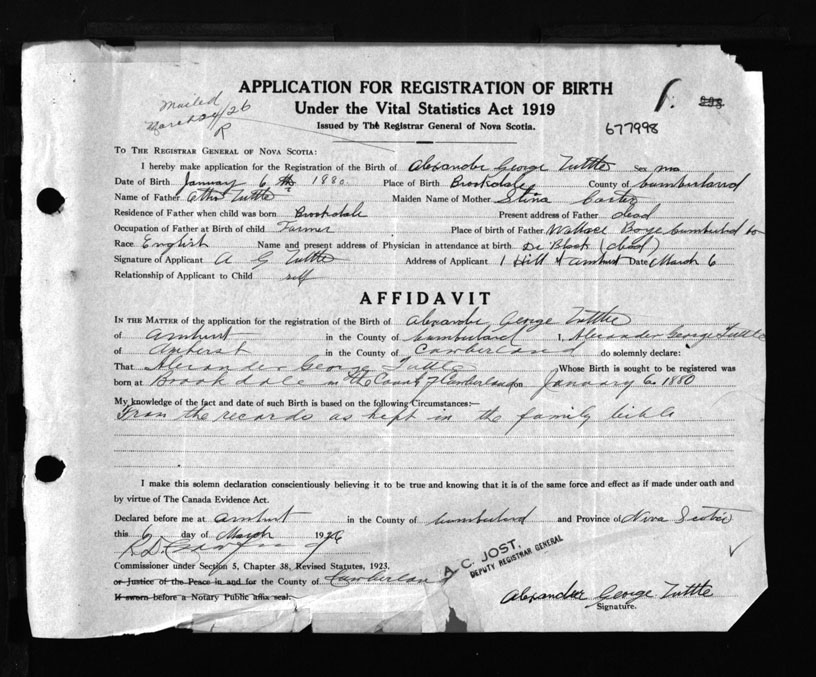 APPLICATION FOR REGISTRATION OF BIRTH
Under the Vital Statistics Act 1919
Issued by The Registrar General of Nova Scotia.
Mailed
March 24/26
R
677998
TO THE REGISTRAR GENERAL OF NOVA SCOTIA:
I hereby make application for the Registration of the Birth of Alexander George Tuttle Sex ma
Date of Birth January 6th 1880 Place of Birth Brookdale County of Cumberland
Name of Father Tuttle Maiden Name of Mother
Residence of Father when child was born Brookdale Present address of Father dead
Occupation of Father at Birth of child Farmer Place of birth of Father Wallace
Race English Name and present address of Physician in attendance at birth Dr Black (dead)
Signature of Applicant A G Tuttle Address of Applicant 1 Hill st Amherst Date March 6
Relationship of Applicant to Child self
AFFIDAVIT
IN THE MATTER of the application for the registration of the Birth of Alexander George Tuttle
of Amherst in the County of Cumberland I, Alexander George Tuttle
of Amherst in the County of Cumberland do solemnly declare:
That Alexander George Tuttle Whose Birth is sought to be registered was
born at Brookdale in the County of Cumberland on January 6 1880
My knowledge of the fact and date of such Birth is based on the following Circumstances:—
From the records as kept in the family bible
I make this solemn declaration conscientiously believing it to be true and knowing that it is of the same force and effect as if made under oath and
by virtue of The Canada Evidence Act.
Declared before me at Amherst in the County of Cumberland and Province of Nova Scotia
this 6 day of March 1926
Commissioner under Section 5, Chapter 38, Revised Statutes, 1923.
or Justice of the Peace in and for the County of Cumberland
If sworn before a Notary Public affix seal.
A. C. JOST,
DEPUTY REGISTRAR GENERAL
Alexander George Tuttle
Signature.